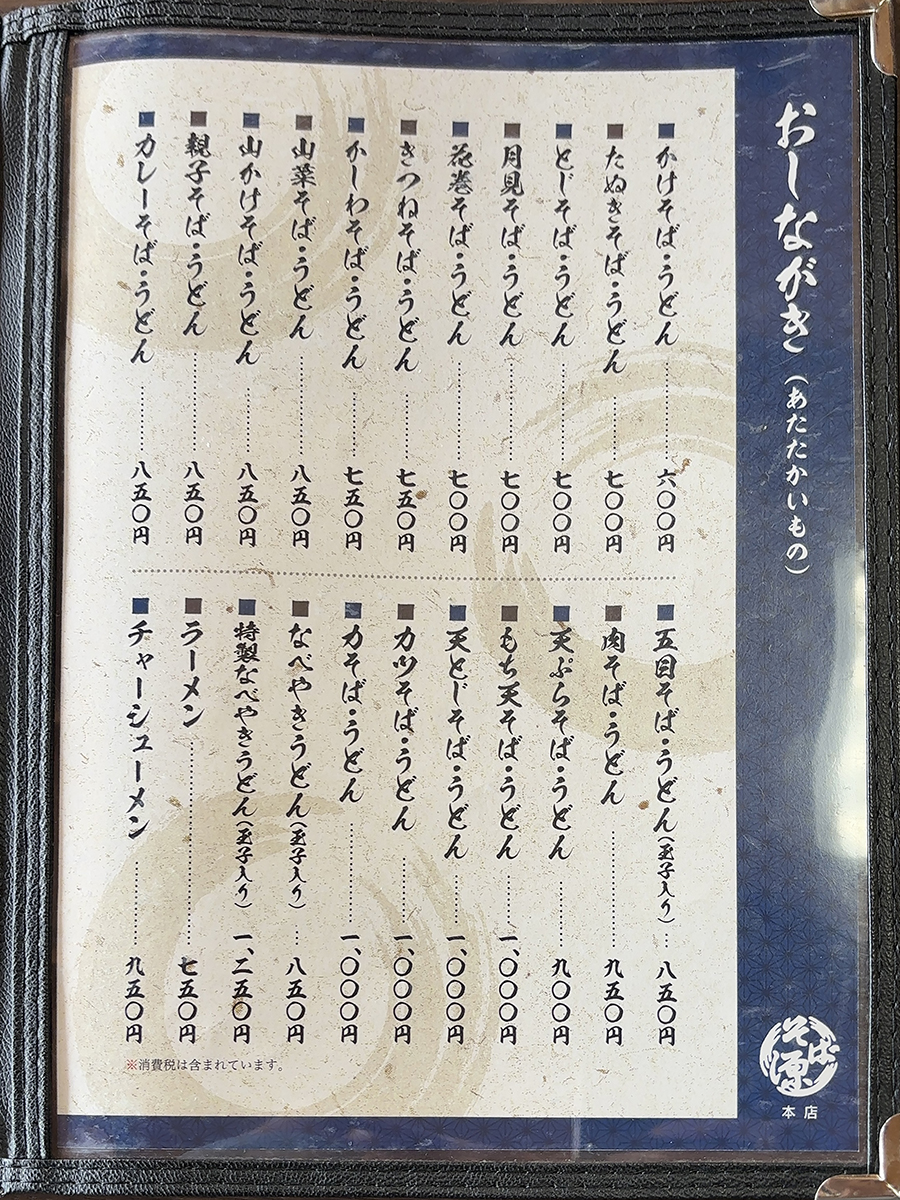 おしながき(あたたかいもの)
かけそば・うどん 六〇〇円
たぬきそば・うどん 七〇〇円
とじそば・うどん 七〇〇円
月見そば・うどん 七〇〇円
花巻そば・うどん 七〇〇円
きつねそば・うどん 七五〇円
かしわそば・うどん 七五〇円
山菜そば・うどん 八五〇円
山かけそば・うどん 八五〇円
親子そば・うどん 八五〇円
カレーそば・うどん 八五〇円
五目そば・うどん(玉子入り) 八五〇円
肉そば・うどん 九五〇円
天ぷらそば・うどん 九〇〇円
もち天そば・うどん 一、〇〇〇円
天とじそば・うどん 一、〇〇〇円
カツそば・うどん 一、〇〇〇円
力そば・うどん 一、〇〇〇円
なべやきうどん(玉子入り) 八五〇円
特製なべやきうどん(玉子入り) 一、二五〇円
ラーメン 七五〇円
チャーシューメン 九五〇円
※消費税は含まれています。
そば源
本店